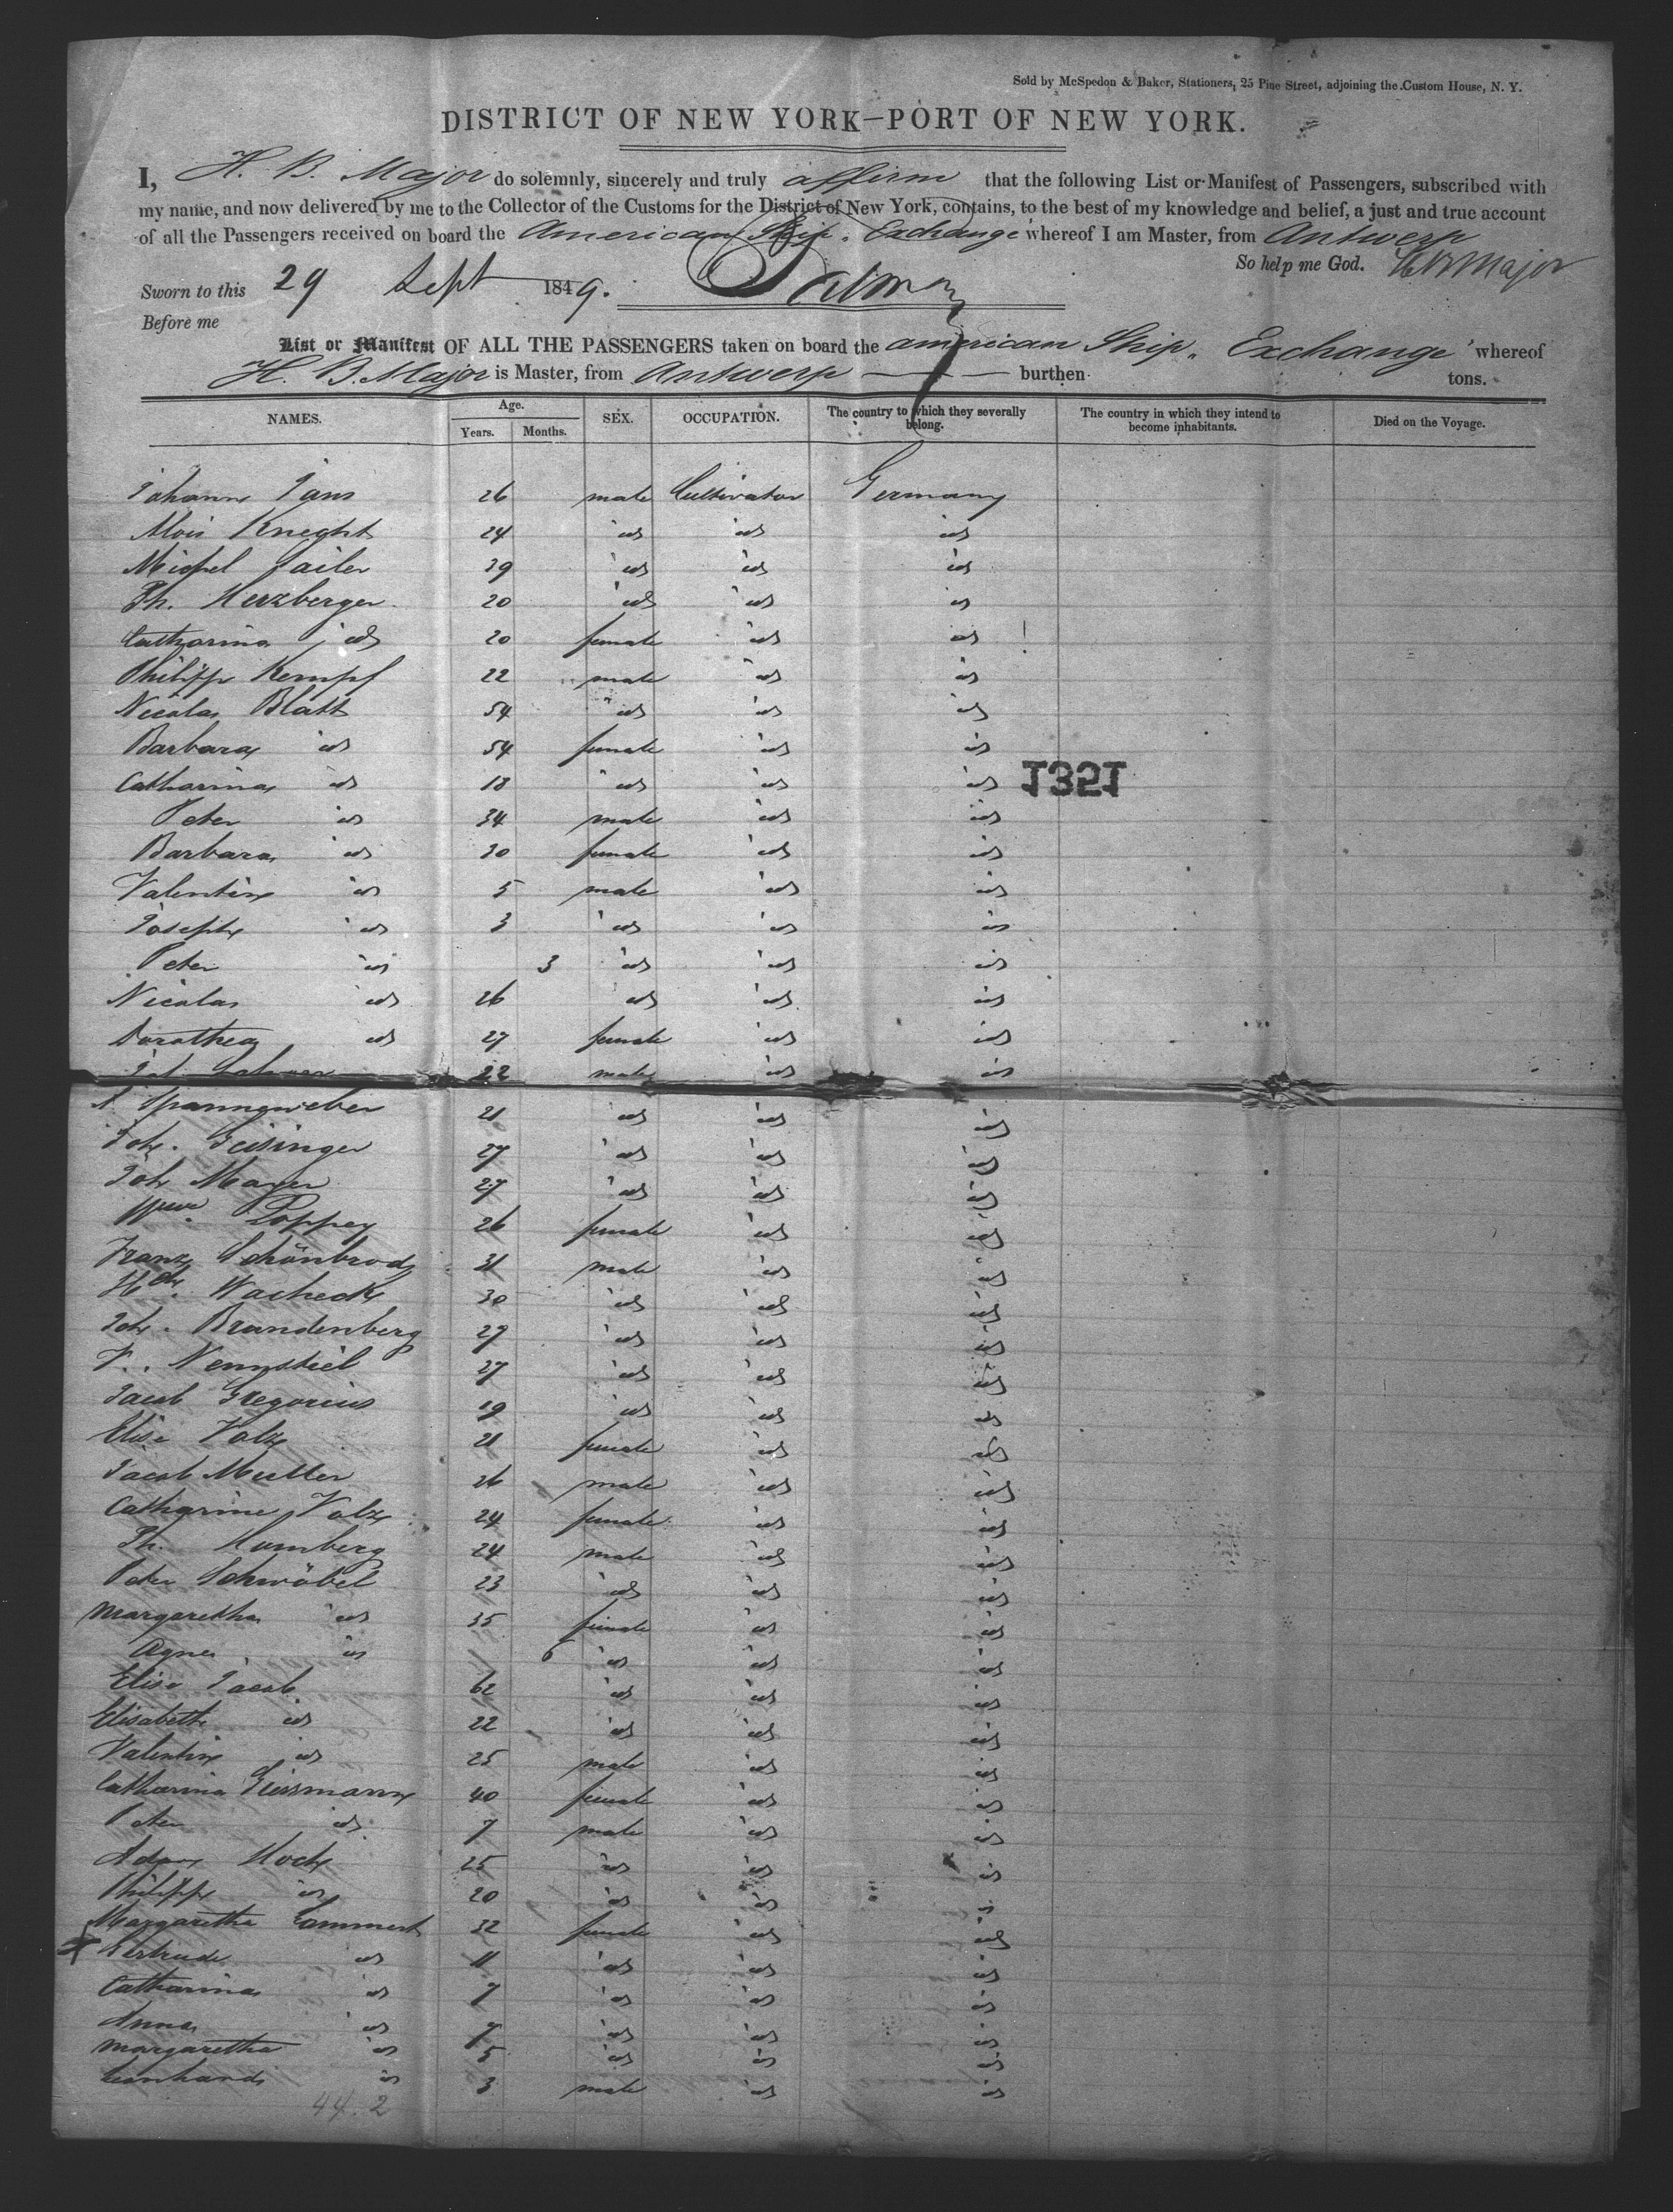 Sold by McSpedon & Baker, Stationers, 25 Pine Street, adjoining the Custom House, N. Y.
DISTRICT OF NEW YORK—PORT OF NEW YORK.
I, H. B. Major do solemnly, sincerely and truly affirm that the following List or Manifest of Passengers, subscribed with
my name, and now delivered by me to the Collector of the Customs for the District of New York, contains, to the best of my knowledge and belief, a just and true account
of all the Passengers received on board the American Ship Exchange whereof I am Master, from Antwerp
So help me God. H B Major
Sworn to this 29 Sept 1849.
Before me
List or Manifest OF ALL THE PASSENGERS taken on board the american Ship Exchange whereof
H. B. Major is Master, from Antwerp burthen tons.
NAMES. Age. Years. Months. SEX. OCCUPATION. The country to which they severally belong. The country in which they intend to become inhabitants. Died on the Voyage.
Johann Jans 26 male Cultivator Germany
Alois Kneght 24 id id id
Michel Sailer 39 id id id
Ph. Herzberger 20 id id id
Catharina id 20 female id id
Philipp Kempf 22 male id id
Nicolas Blatt 54 id id id
Barbara id 54 female id id
Catharina id 18 id id id
1351
Peter id 34 male id id
Barbara id 30 female id id
Valentin id 5 male id id
Joseph id 3 id id id
Peter id 3 id id id
Nicolas id 26 id id id
Dorothea id 27 female id id
22 male id id
Spannweber 21 id id id
Joh. Geisinger 27 id id id
Joh Mayer 27 id id id
Poppey 26 female id id
Franz Schönbrod 31 male id id
Wacheck 30 id id id
Joh. Brandenberg 27 id id id
V. Nennstiel 27 id id id
Jacob Gregorius 19 id id id
Elise Volz 21 female id id
Jacob Muller 26 male id id
Catharine Volz 24 female id id
Ph. Humberg 24 male id id
Peter Schwöbel 23 id id id
Margaretha id 35 female id id
Agnes id 6 id id id
Elise Jacob 62 id id id
Elisabeth id 22 id id id
Valentin id 25 male id id
Catharina Giessmann 40 female id id
Peter id 7 male id id
Adam Hoch 25 id id id
Philipp id 20 id id id
Margaretha Lammert 32 female id id
Gertrude id 11 id id id
Catharina id 7 id id id
Anna id 7 id id id
Margaretha id 5 id id id
Leonhard id 3 male id id
44.2